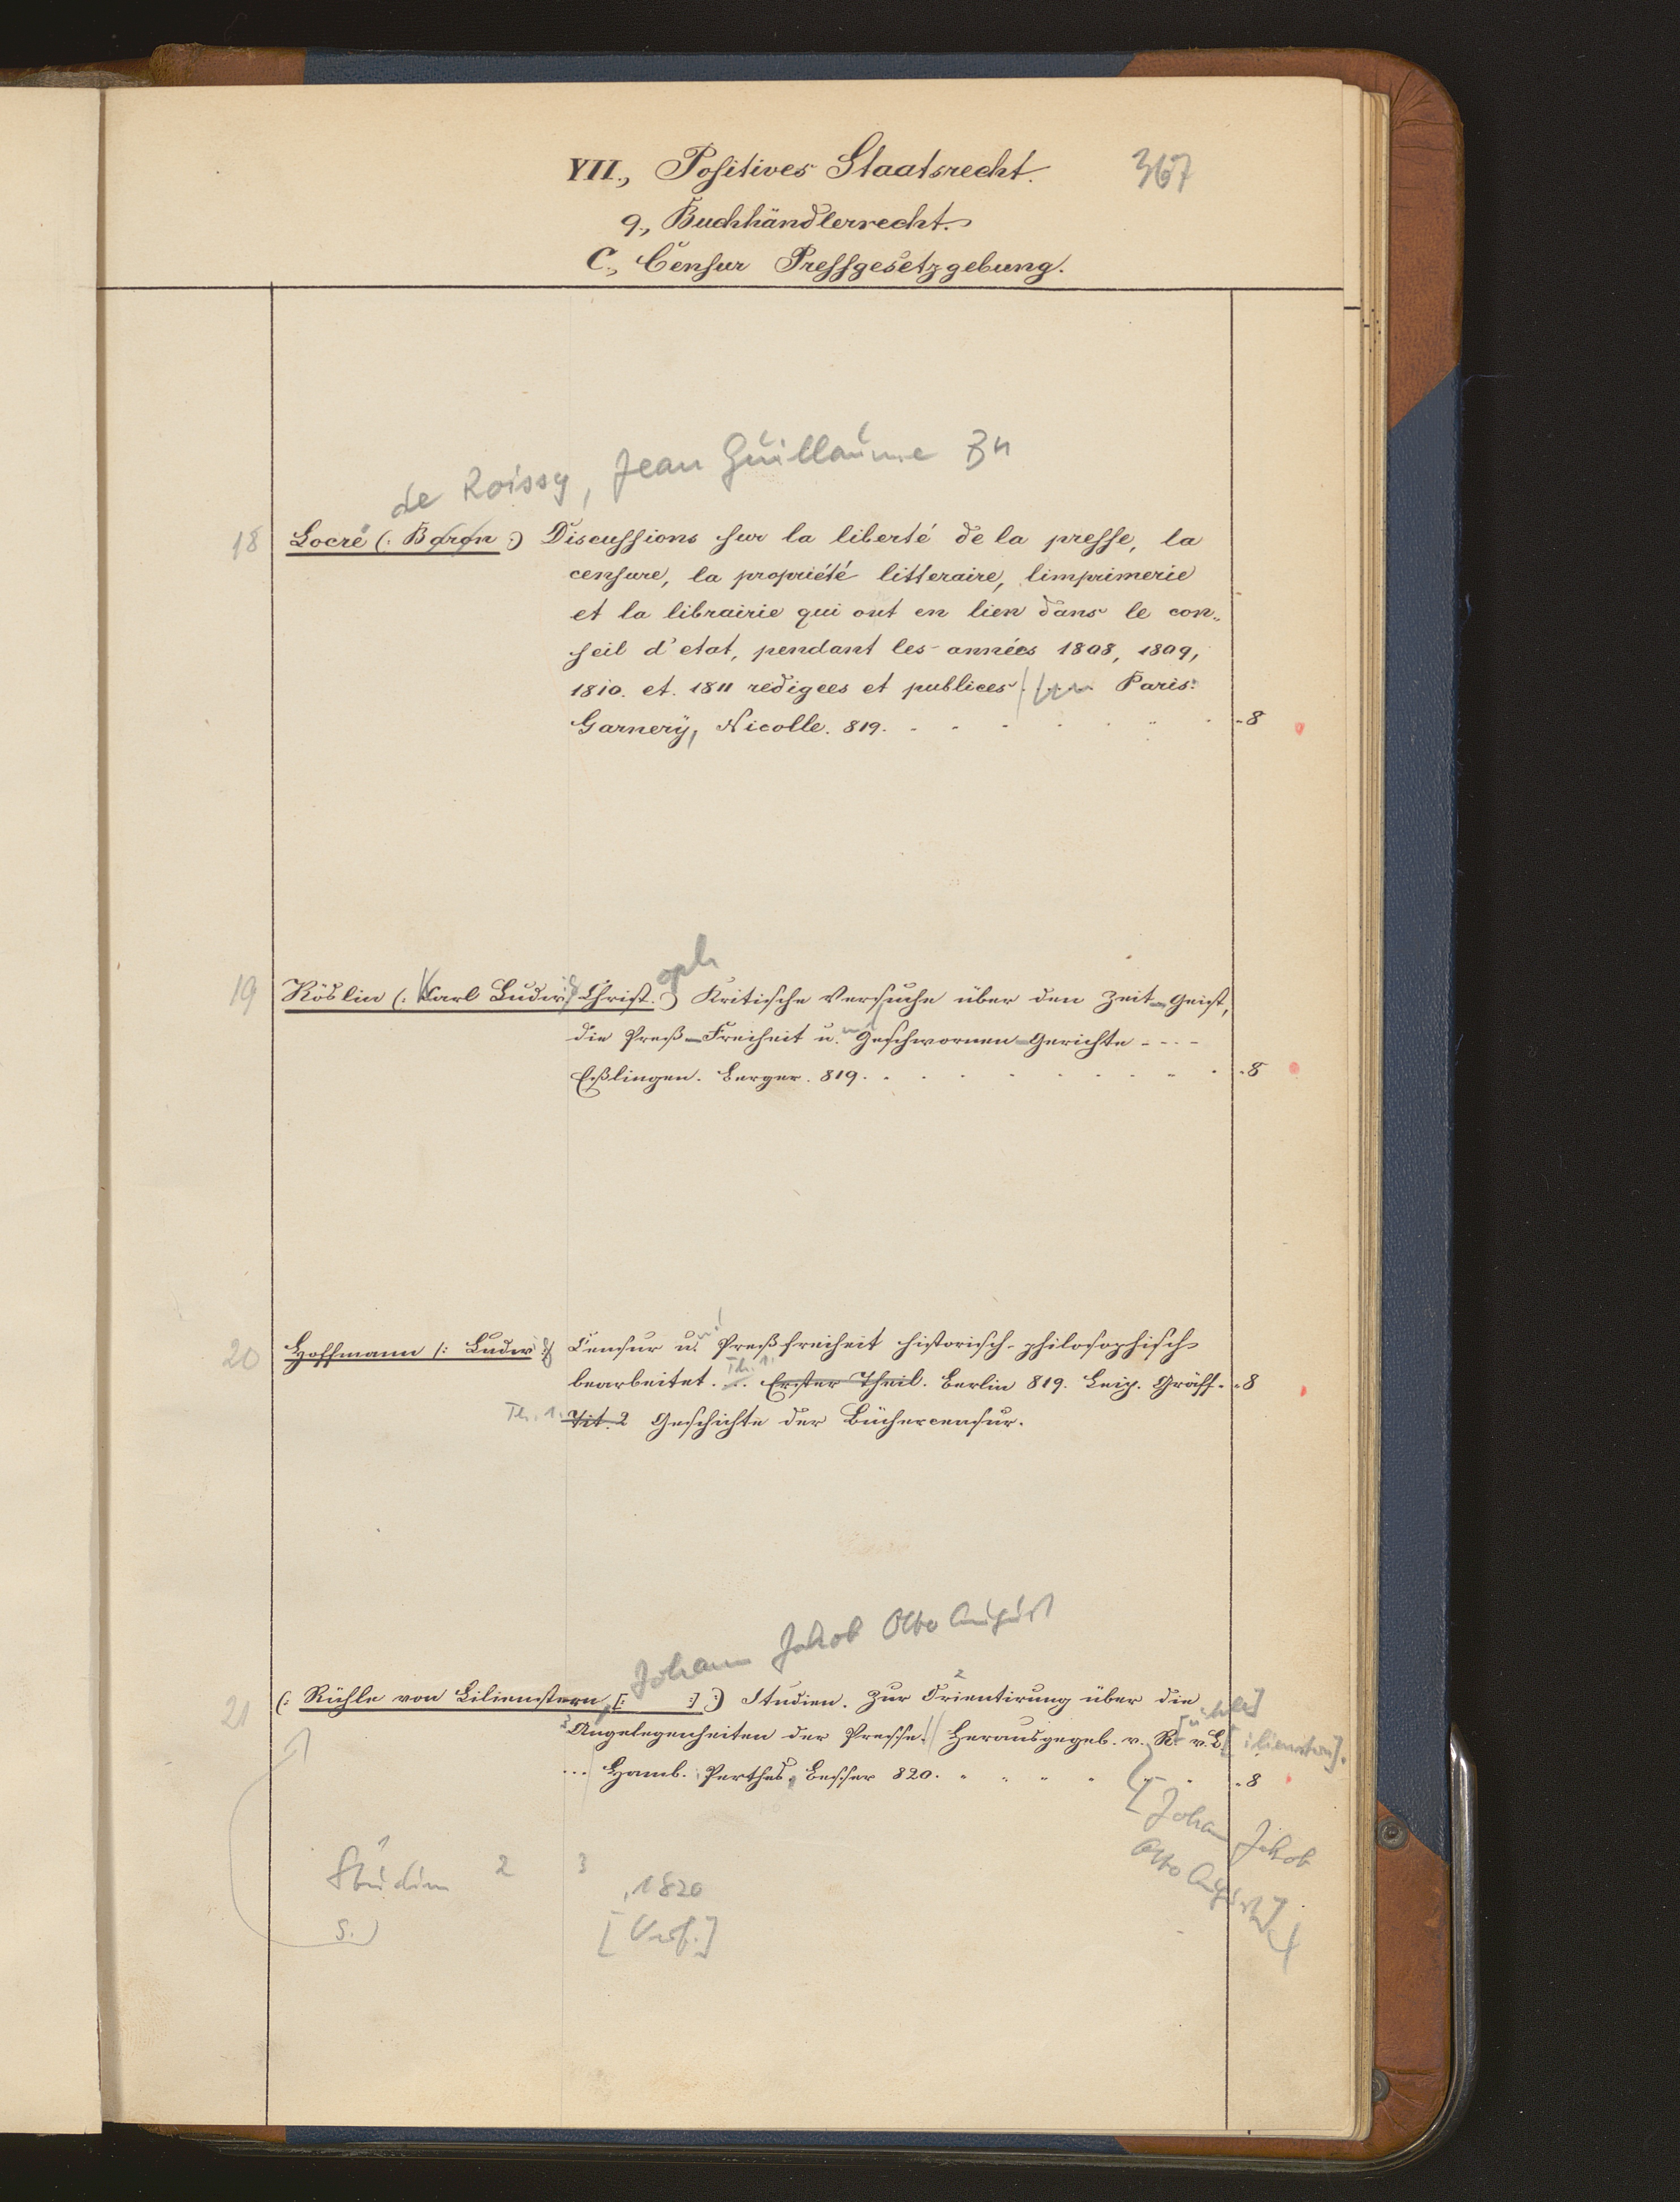 VII., Positives Staatsrecht. 367
9., Buchhändlerrecht.
C., Censur Pressgesetzgebung.
de Roissy, Jean Guillaume Bn
18 Locré (: Baron :) Discussions sur la liberté de la presse, la
censure, la propriété litteraire, limprimerie
et la librairie qui ont en lien dans le con„
seil d'etat, pendant les années 1808, 1809,
1810. et. 1811 redigees et publiees Paris.
Garnery, Nicolle. 819. „8
oph
19 Köslin (: Karl Ludwig Christ. :) Kritische Versuche über den Zeit-Geist,
die Preß-Freiheit u. Geschwornen-Gerichte - - -
Eßlingen. Berger. 819. „8
20 Hoffmann (: Ludwig :) Censur u. Preßfreiheit historisch-philosophisch
Th. 1.
bearbeitet. ... Erster Theil. Berlin 819. Leip. Gräff. „8
Th. 1. Tit. 2 Geschichte der Büchercensur.
Johann Jakob Otto August
21 (: Rühle von Lilienstern, [: :] :) Studien. Zur Orientirung über die
Angelegenheiten der Presse. Herausgegeb. v. R[ühle] v. L[ilienstern].
... Hamb. Perthes, Besser 820. „8
[Johann Jakob
Otto August]
Studien 2 3
, 1820
S.)
[Verf.]